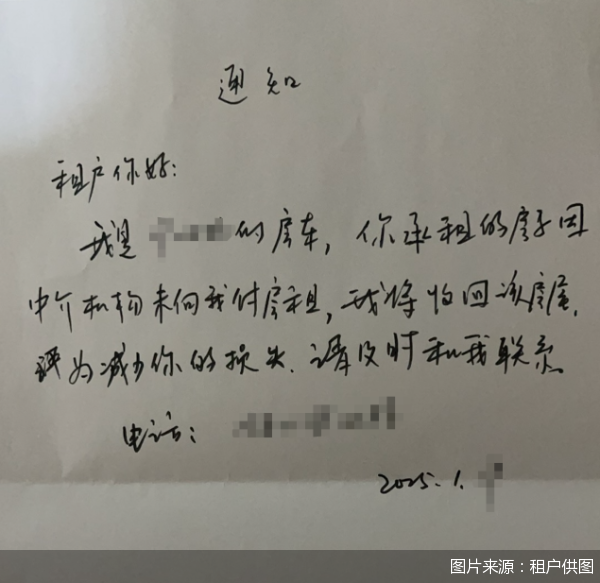 通知
租户你好:
我是 的房东,你承租的房子因
中介机构未向我付房租,我将收回该房屋.
为减少你的损失.请及时和我联系
电话:
2025.1.
图片来源：租户供图